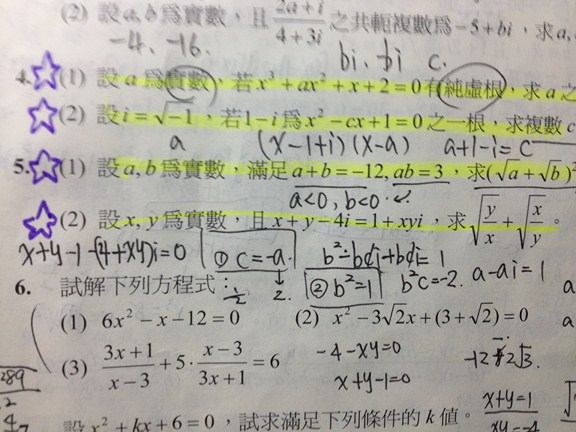 (2) 設 a, b 為實數，且 2a+i / 4+3i 之共軛複數為 -5+bi，求 a,
-4、-16.
bi、-bi c.
4. (1) 設 a 為實數，若 x³+ax²+x+2=0 有純虛根，求 a 之
(2) 設 i=√-1，若 1-i 為 x²-cx+1=0 之一根，求複數 c
a (x-1+i)(x-a) a+1-i=c
5. (1) 設 a, b 為實數，滿足 a+b=-12, ab=3，求 (√a+√b)²
a<0, b<0.
(2) 設 x, y 為實數，且 x+y-4i=1+xyi，求 √(y/x)+√(x/y)。
x+y-1-(4+xy)i=0 ① c=-a. b²=1 b²c=-2. a-ai=1
6. 試解下列方程式： ② b²=1
(1) 6x²-x-12=0 (2) x²-3√2x+(3+√2)=0
(3) 3x+1 / x-3 + 5· x-3 / 3x+1 = 6 -4-xy=0
x+y-1=0
289
設 x²+kx+6=0，試求滿足下列條件的 k 值。 x+y=1
xy=-4